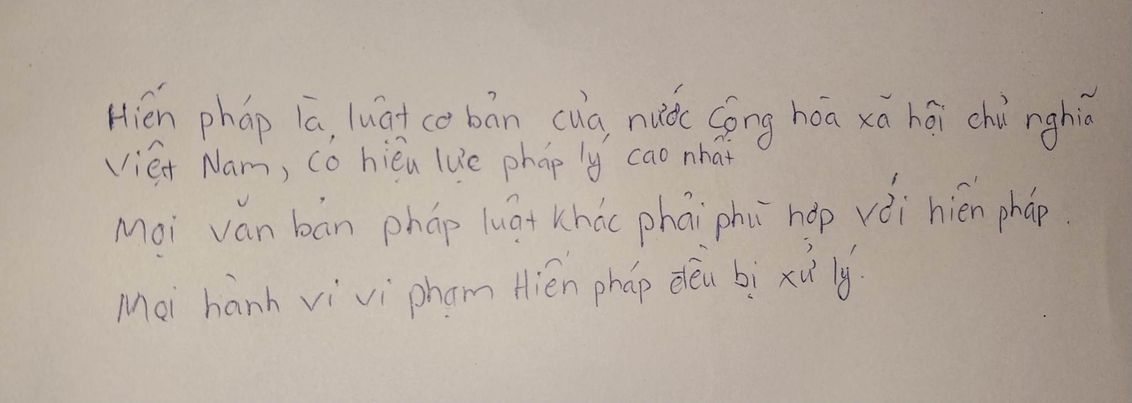 Hiến pháp là luật cơ bản của nước Cộng hòa xã hội chủ nghĩa
Việt Nam, có hiệu lực pháp lý cao nhất
Mọi văn bản pháp luật khác phải phù hợp với hiến pháp.
Mọi hành vi vi phạm Hiến pháp đều bị xử lý.